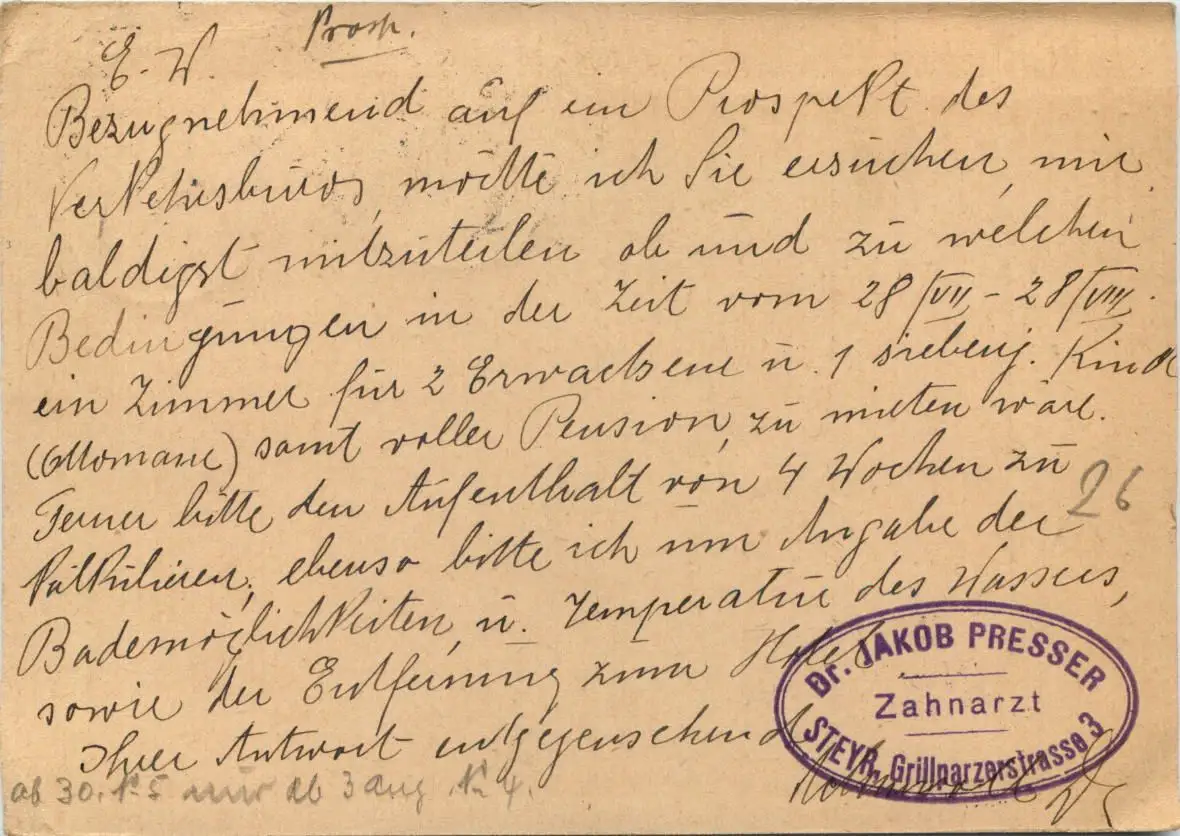 Prosp.
E. W.
Bezugnehmend auf ein Prospekt des
Verkehrsbüros, möchte ich Sie ersuchen, mir
baldigst mitzuteilen ob und zu welchen
Bedingungen in der Zeit vom 28/VII - 28/VIII.
ein Zimmer für 2 Erwachsene u. 1 siebenj. Kind
(Ottomane) samt voller Pension, zu mieten wäre.
Ferner bitte den Aufenthalt von 4 Wochen zu
26
kalkulieren, ebenso bitte ich um Angabe der
Bademöglichkeiten, u. Temperatur des Wassers,
sowie der Entfernung zum Hotel.
Ihrer Antwort entgegensehend
Dr. JAKOB PRESSER
Zahnarzt
STEYR, Grillparzerstrasse 3
ab 30. N. 5 nur ab 3 Aug. N. 4.